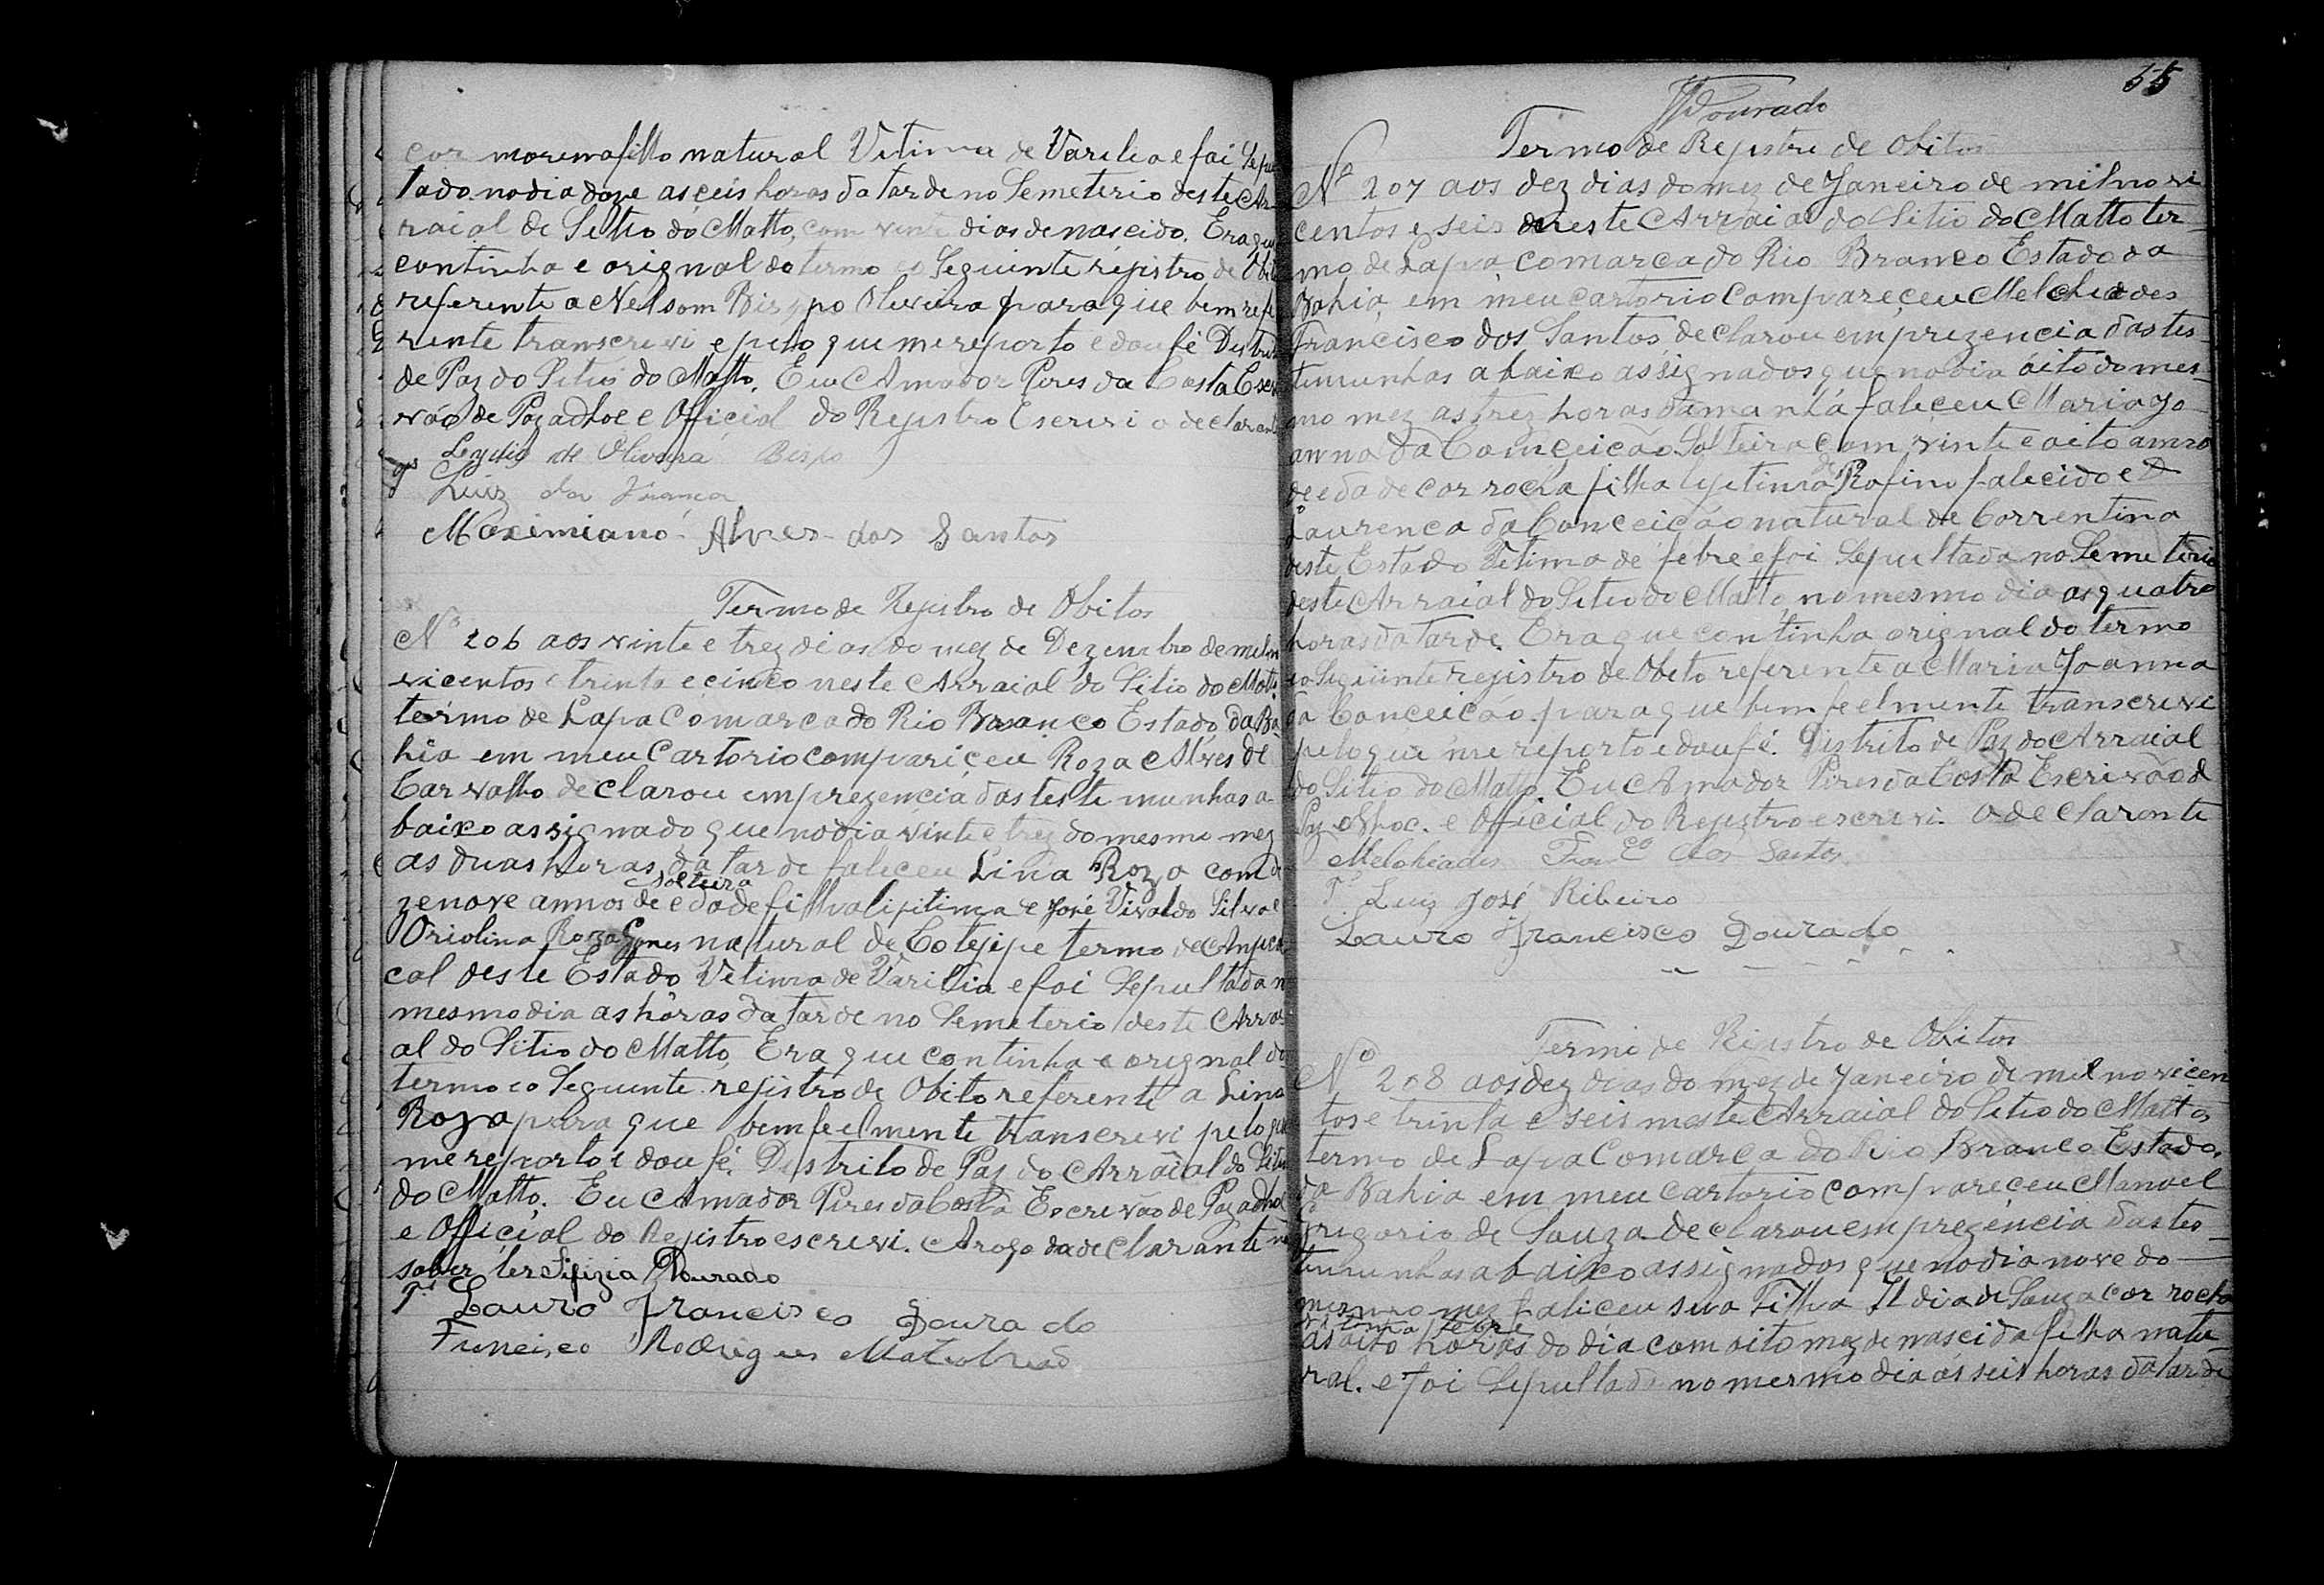 cor morena filho natural Vitima de Varilia e foi Sepu
tado no dia doze as ceis horas da tarde no Semeterio deste Ar-
raial de Sitio do Matto, com vinte dias de nascido. Era que
continha e orignal do termo eo Seguinte registro de Obito
referente a Nelsom Bispo Oliveira para que bem refe
rente transcrevi e pelo que me reporto e dou fé Destrito
de Paz do Sitio do Matto. Eu Amador Pires da Costa Escri
vão de Paz adhoc e Oficial do Rejistro Escrevi o declarante
Leydis de Oliveira Bispo
Luiz da França
Maximiano Alves dos Santos
Termo de Rejistro de Obitos
Nº 206 aos vinte e trez dias do mez de Dezembro de mil no
vicentos e trinta e cinco neste Arraial do Sitio do Matto
termo de Lapa Comarca do Rio Branco Estado da Ba
hia em meu Cartorio compariçeu Roza Alves de
Carvalho declarou em prezencia das teste munhas a
baixo assignado que no dia vinte e trez do mesmo mez
as duas horas da tarde faleceu Lina Roza com de
zenove annos de edade solteira filha lijitima e José Vivaldo Silva e
Oriolina Roza Gomes natural de Cotejipe termo de Anjica
cal deste Estado Vetima de Varilia e foi Sepultada n
mesmo dia as hôras da tarde no Semeterio deste Arrai
al do Sitio do Matto, Era que continha e orignal do
termo eo Seguente rejistro de Obito referente a Lina
Roza para que bem feelmente transcrevi pelo que
me reporto e dou fé. Destrito de Paz do Arraial do Sitio
do Matto. Eu Amador Pires da Costa Escrevão de Paz adhoc
e Official do Rejistro escrevi. Arogo da declarante não
saber ler Sifizia Dourado
Tes Lauro Francisco Dourado
Francisco Rodrigues
55
Dourado
Termo de Rejistro de Obitos
Nº 207 aos dez dias do mez de Janeiro de mil novi
centos e seis deneste Arraial do Sitio do Matto ter-
mo de Lapa comarca do Rio Branco Estado da
Bahia, em meu cartorio compareçeu Melchiades
Francisco dos Santos, declarou em prezencia das tes-
temunhas abaixo assignados que no dia oito do mes-
mo mez as trez horas da manhã faleceu Maria Jo-
anna da Comceicão Solteira com vinte e oito annos
de edade cor rocha filha lejetima de Rofino falecido e d
Laurença da Conceicão natural de Correntina
deste Estado Vetima de febre e foi Sepultada no Semeterio
deste Arraial do Sitio do Matto, no mesmo dia as quatro
horas da tarde. Era que continha orignal do termo
eo Seguinte rejistro de Obito referente a Maria Joanna
da Conceicão para que bem feelmente transcrevi
pelo que me reporto e dou fé. Distrito de Paz do Arraial
do Sitio do Matto. Eu Amador Pires da Costa Escrivão d
Paz adhoc. e Official do Rejistro escrevi. O declarante
Melchiades Franco dos Santos
Ts Luiz José Ribeiro
Lauro Francisco Dourado
Termo de Rijistro de Obitos
Nº 208 aos dez dias do mez de Janeiro de mil novicen
tos e trinta e seis neste Arraial do Sitio do Matto
termo de Lapa Comarca do Rio Branco Estado.
da Bahia em meu cartorio compareçeu Manoel
Grigorio de Souza declarou em prezencia das tes-
temunhas abaixo assignados que no dia nove do
mesmo mez faliceu sua Filha Ildia de Souza cor rocha
vitima febre
as oito horas do dia com oito mez de nascida filha natu
ral. e foi Sepultada no mesmo dia as seis horas da tarde